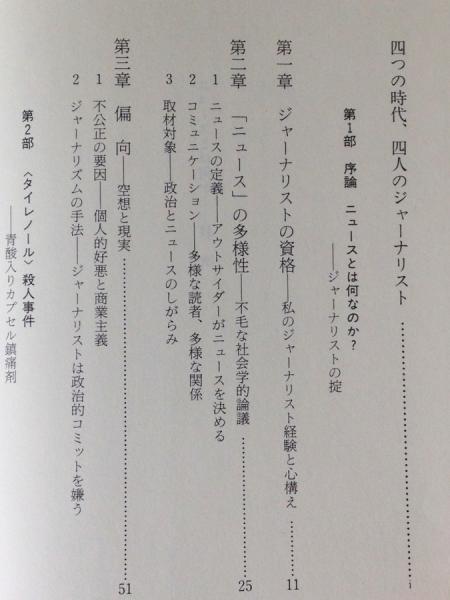 四つの時代、四人のジャーナリスト……………………………i
第1部　序論　ニュースとは何なのか?
——ジャーナリストの掟
第一章　ジャーナリストの資格——私のジャーナリスト経験と心構え……………11
第二章　「ニュース」の多様性——不毛な社会学的論議……………………25
1　ニュースの定義——アウトサイダーがニュースを決める
2　コミュニケーション——多様な読者、多様な関係
3　取材対象——政治とニュースのしがらみ
第三章　偏　向——空想と現実……………………………………51
1　不公正の要因——個人的好悪と商業主義
2　ジャーナリズムの手法——ジャーナリストは政治的コミットを嫌う
第2部　〈タイレノール〉殺人事件
——青酸入りカプセル鎮痛剤